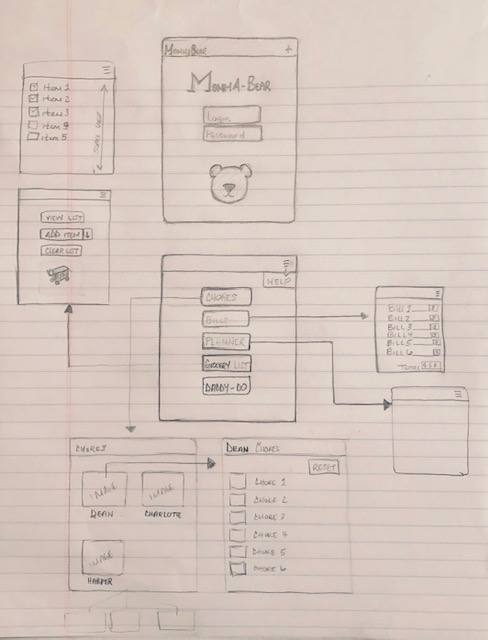 MommaBear +
MommA-Bear
Login
Password
Item 1
Item 2
Item 3
Item 4
Item 5
Scroll View
View List
Add Item
Clear List
Help
Chores
Bills
Planner
Grocery List
Daddy-Do
Bill 1
Bill 2
Bill 3
Bill 4
Bill 5
Bill 6
Total
Chores
Image
Dean
Image
Charlotte
Image
Harper
Dean Chores
Reset
Chore 1
Chore 2
Chore 3
Chore 4
Chore 5
Chore 6